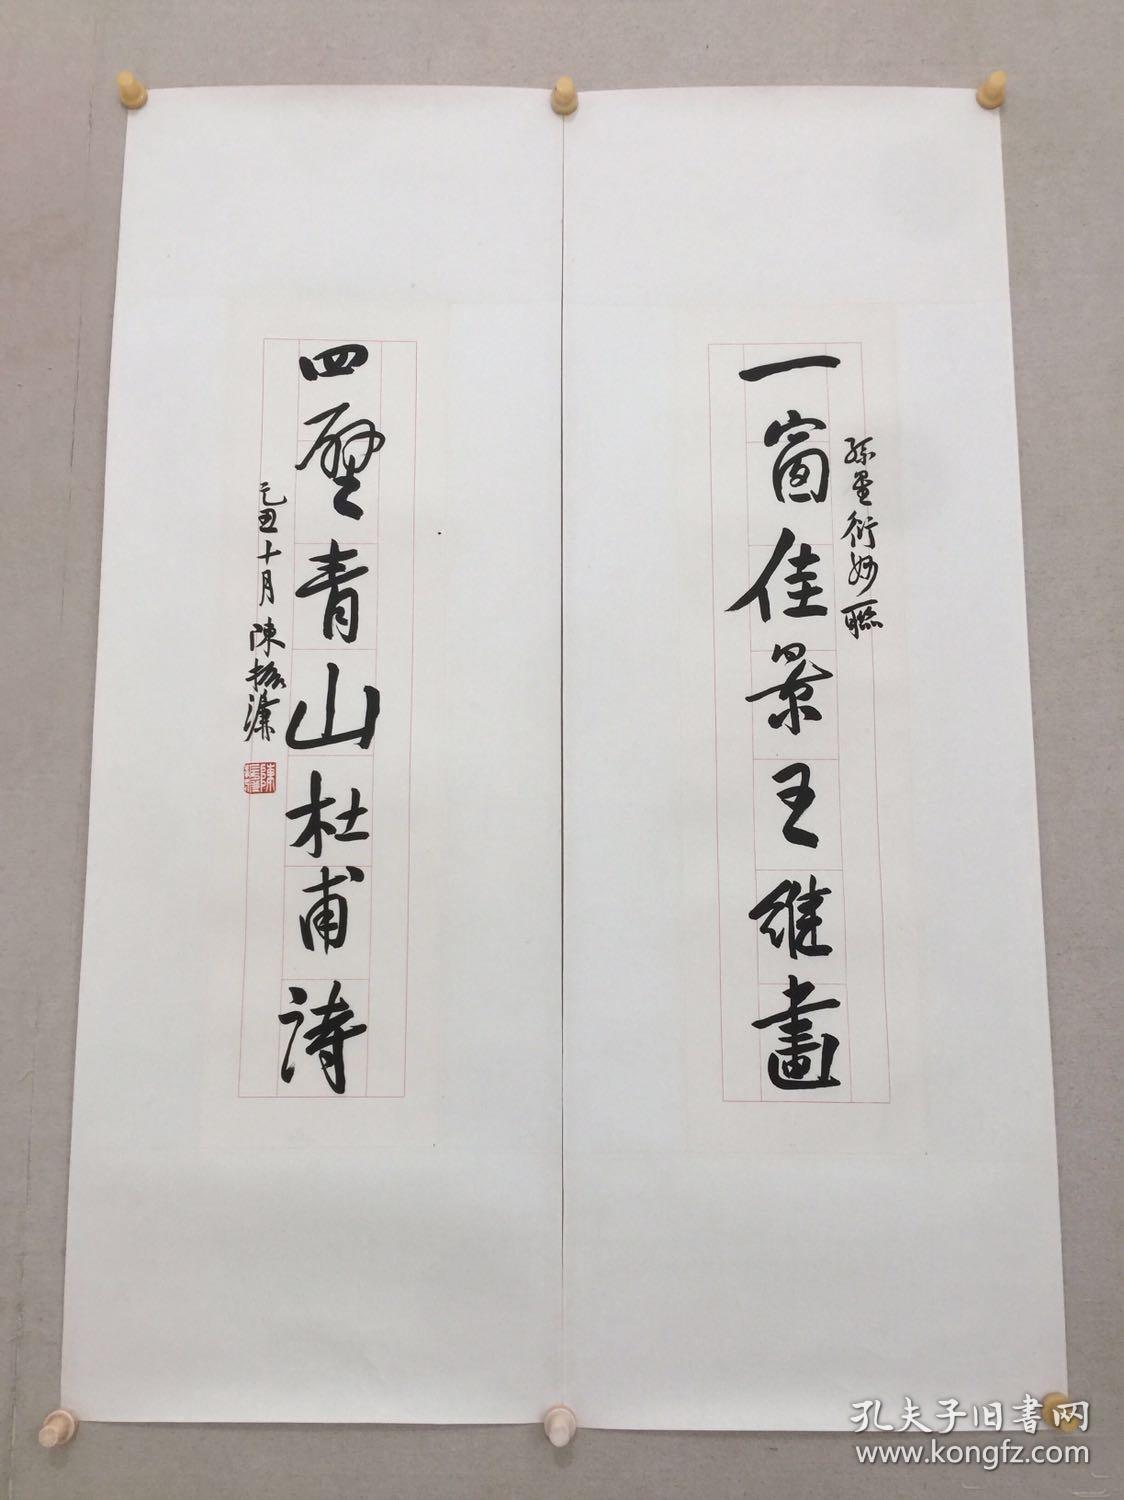 一窗佳景王维畫
孫星衍妙聯
四壁青山杜甫詩
己丑十月陳振濂
孔夫子旧書网
www.kongfz.com